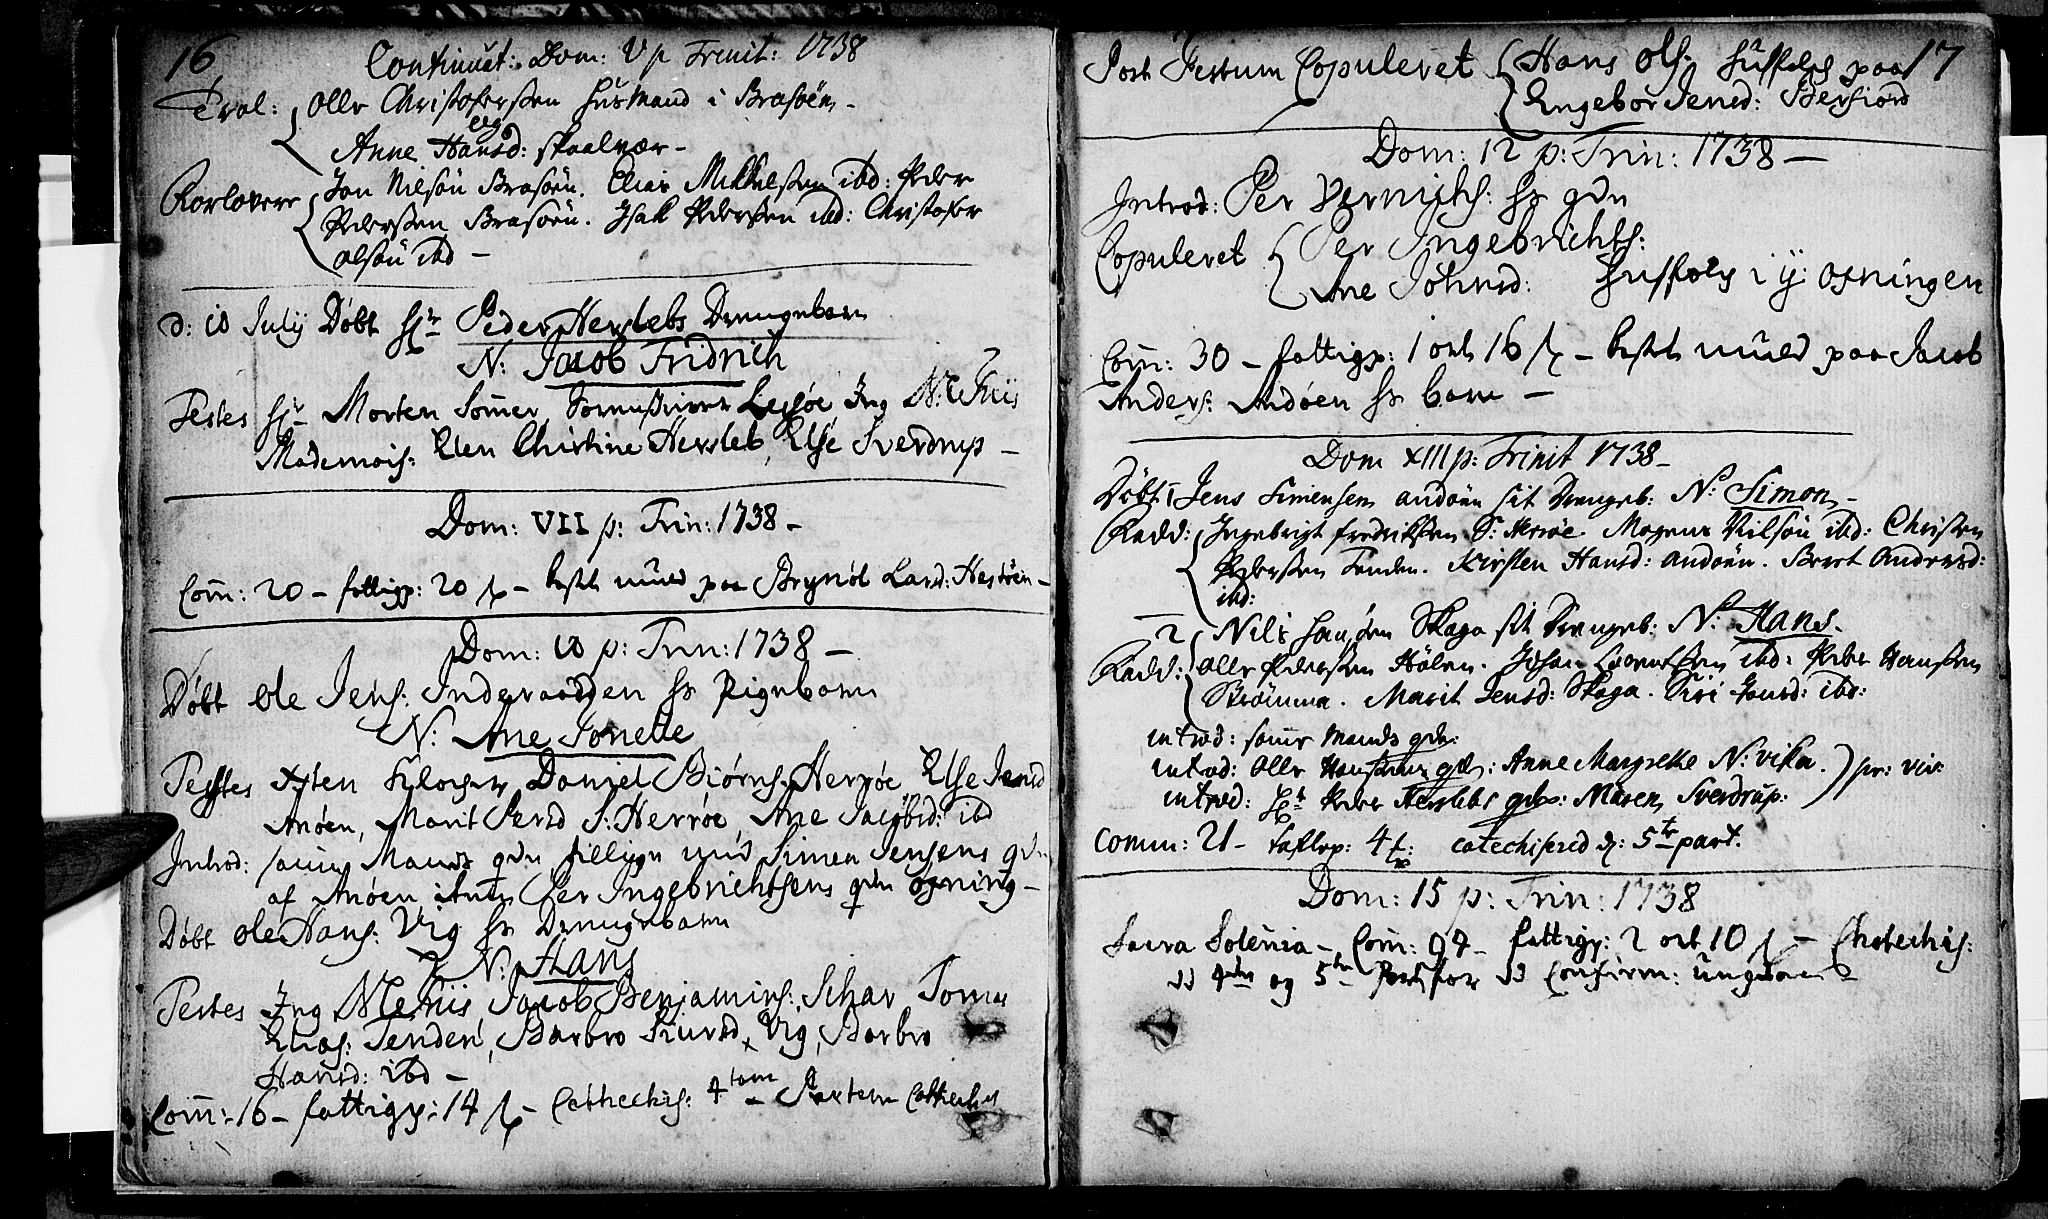 16
Continuat: Dom: V p Trinit: 1738
Trol: Olle Christofersen Husmand i Brasøen -
Anne Hansd: eg skaalvær -
Forlovere Jon Nilsøn Brasøen. Elias Mikkelsen ibd: Peder
Pedersen Brasøen. Isak Pedersen ibd: Christofer
olsøn ibd -
d: 10 Julij Døbt Hr Peder Herslebs Drengebarn
N: Jacob Fridrich
Testes Hr Morten Somer, Sorenskriver Lessøe, Jng N: Friis
Mademois: Elen Christine Hersleb, Else Sverdrup -
Dom: VII p: Trin: 1738 -
Com: 20 - fattigp: 20 s - kast muld paa Brynøl Larsd: Hestøen -
Dom: 10 p: Trin: 1738 -
Døbt Ole Jens: Inderaadden hs Pigebarn
N: Ane Jonette
Testes Daniel Biørns: Herrøe, Else Jensd
Anøen, Marit Persd S: Herrøe, Ane Jacobsd: ibd
Introd: samme Mands qvn Simen Jensens qvn
af Anøen, Per Ingebrichtsens qvn øxning -
Døbt Ole Hans: Vig hs Drengebarn
N: Hans
Testes Jng Jacob Benjamins: Schar Tomas
Elias: Tenden, Barbro Siursd, Vig, Barbro
Hansd: ibd -
Com: 16 - fattigp: 14 s - Cathechis: 4 Partem Catheches
17
Post Festum Copuleret Hans Ols: Husfolch paa
Engebor Jensd: Bersiord
Dom: 12 p: Trin: 1738 -
Introd: Per Vernichs: hs qvn
Copuleret Per Ingebrichts:
Ane Johnsd: Husfolch i y: oxningen
Com: 30 - fattigp: 1 ort 16 s - kast muld paa Jacob
Anders: Andøen hs barn -
Dom XIII p: Trinit 1738 -
Døbt: 1 Jens Simensen andøen sit Drengeb: N: Simon -
Fadd: Ingebrigt fredriksen S: Herøe. Mogens Nilsøn ibd: Christen
Pedersen Tenden. Kirsten Hansd: andøen. Beret Andersd:
ibd:
2 Nils Skaga sit Drengeb: N: Hans.
Fadd: Olle Pedersen Hølen. Johan Lorentsen ibd: Peder Hansen
Strømmen. Marit Jensd: Skaga. Siri Jonsd: ibd:
introd: samme Mands qvn:
introd: Olle Hansens qv: Anne Margrethe N: vika.
introd: Hr Peder Herslebs qv: Maren Sverdrup:
comm: 21 - tavlep: 4 catechiserid d: 5te part.
Dom: 15 p: Trin: 1738
Sacra Solenia - Com: 94 - fattigp: 2 ort 10 s - Chatechis:
4de og 5te Part for Confirm: ungdom